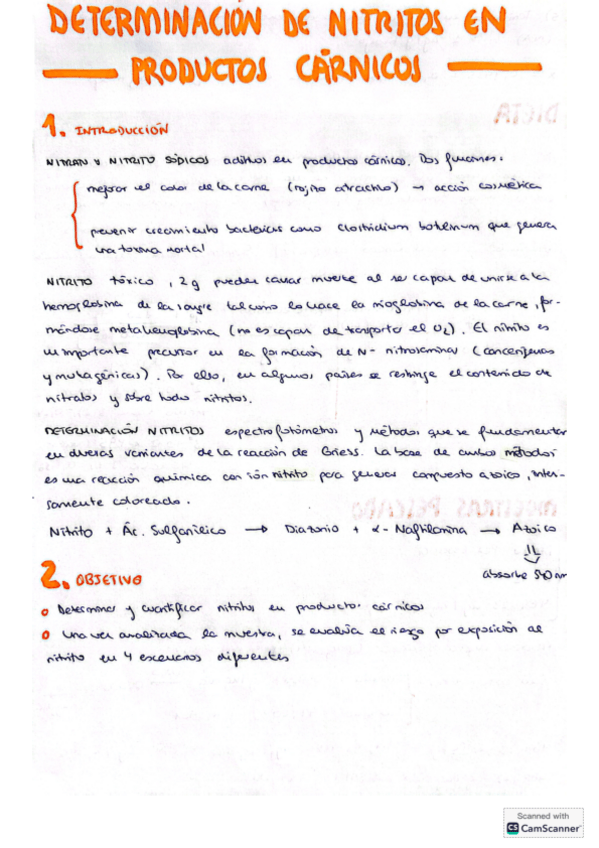 DETERMINACIÓN DE NITRITOS EN
PRODUCTOS CÁRNICOS
1. INTRODUCCIÓN
NITRATO Y NITRITO SÓDICOS aditivos en productos cárnicos. Dos funciones:
mejorar el color de la carne (rojizo atractivo) → acción cosmética
prevenir crecimiento bacterias como Clostridium botulinum que genera
una toxina mortal
NITRITO tóxico, 2 g pueden causar muerte al ser capaz de unirse a la
hemoglobina de la sangre tal como lo hace la mioglobina de la carne, for-
mándose metahemoglobina (no es capaz de transportar el O2). El nitrito es
un importante precursor en la formación de N-nitrosaminas (cancerígenas
y mutagénicas). Por ello, en algunos países se restringe el contenido de
nitratos y sobre todo nitritos.
DETERMINACIÓN NITRITOS espectrofotómetros y métodos que se fundamentan
en diversas variantes de la reacción de Griess. La base de ambos métodos
es una reacción química con ión nitrito para generar compuesto azoico, inten-
samente coloreado.
Nitrito + Ác. Sulfanílico → Diazonio + α-Naftilamina → Azoico
⇓
absorbe 540 nm
2. OBJETIVO
Determinar y cuantificar nitritos en productos cárnicos
Una vez analizada la muestra, se evalúa el riesgo por exposición al
nitrito en 4 escenarios diferentes
Scanned with
CS CamScanner